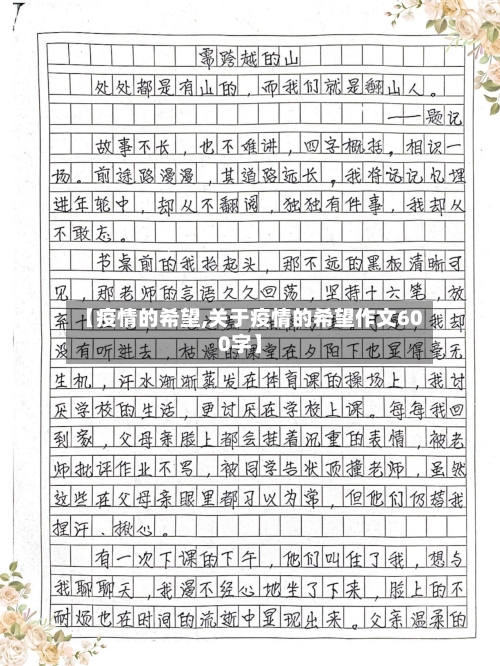 需跨越的山
处处都是有山的，而我们就是翻山人。
——题记
故事不长，也不难讲，四字概括，相识一
场。前途路漫漫，其道路远长，我将记记忆埋
进年轮中，却从不翻阅，独独有件事，我却从
不敢忘。
书桌前的我抬起头，那不远的黑板清晰可
见，那老师的言语久久回荡，坚持十六笔，放
【疫情的希望,关于疫情的希望作文60
0字】
我却
没有听进去，枯燥的课堂在夕阳下也显得毫无
生机，汗水渐渐蒸发在体育课的操场上，我讨
厌学校的生活，更讨厌在学校上课。每每我回
到家，父母亲脸上都会挂着沉重的表情，被老
师批评作业不写，被同学告状顶撞老师，虽然
这些在父母亲眼里都习以为常，但他们仍替我
捏汗、揪心。
有一次下课的下午，他们叫住了我，想与
我聊聊天，我漫不经心地坐了下来，脸上的不
耐烦也在时间的流逝中显现出来。父亲温柔的